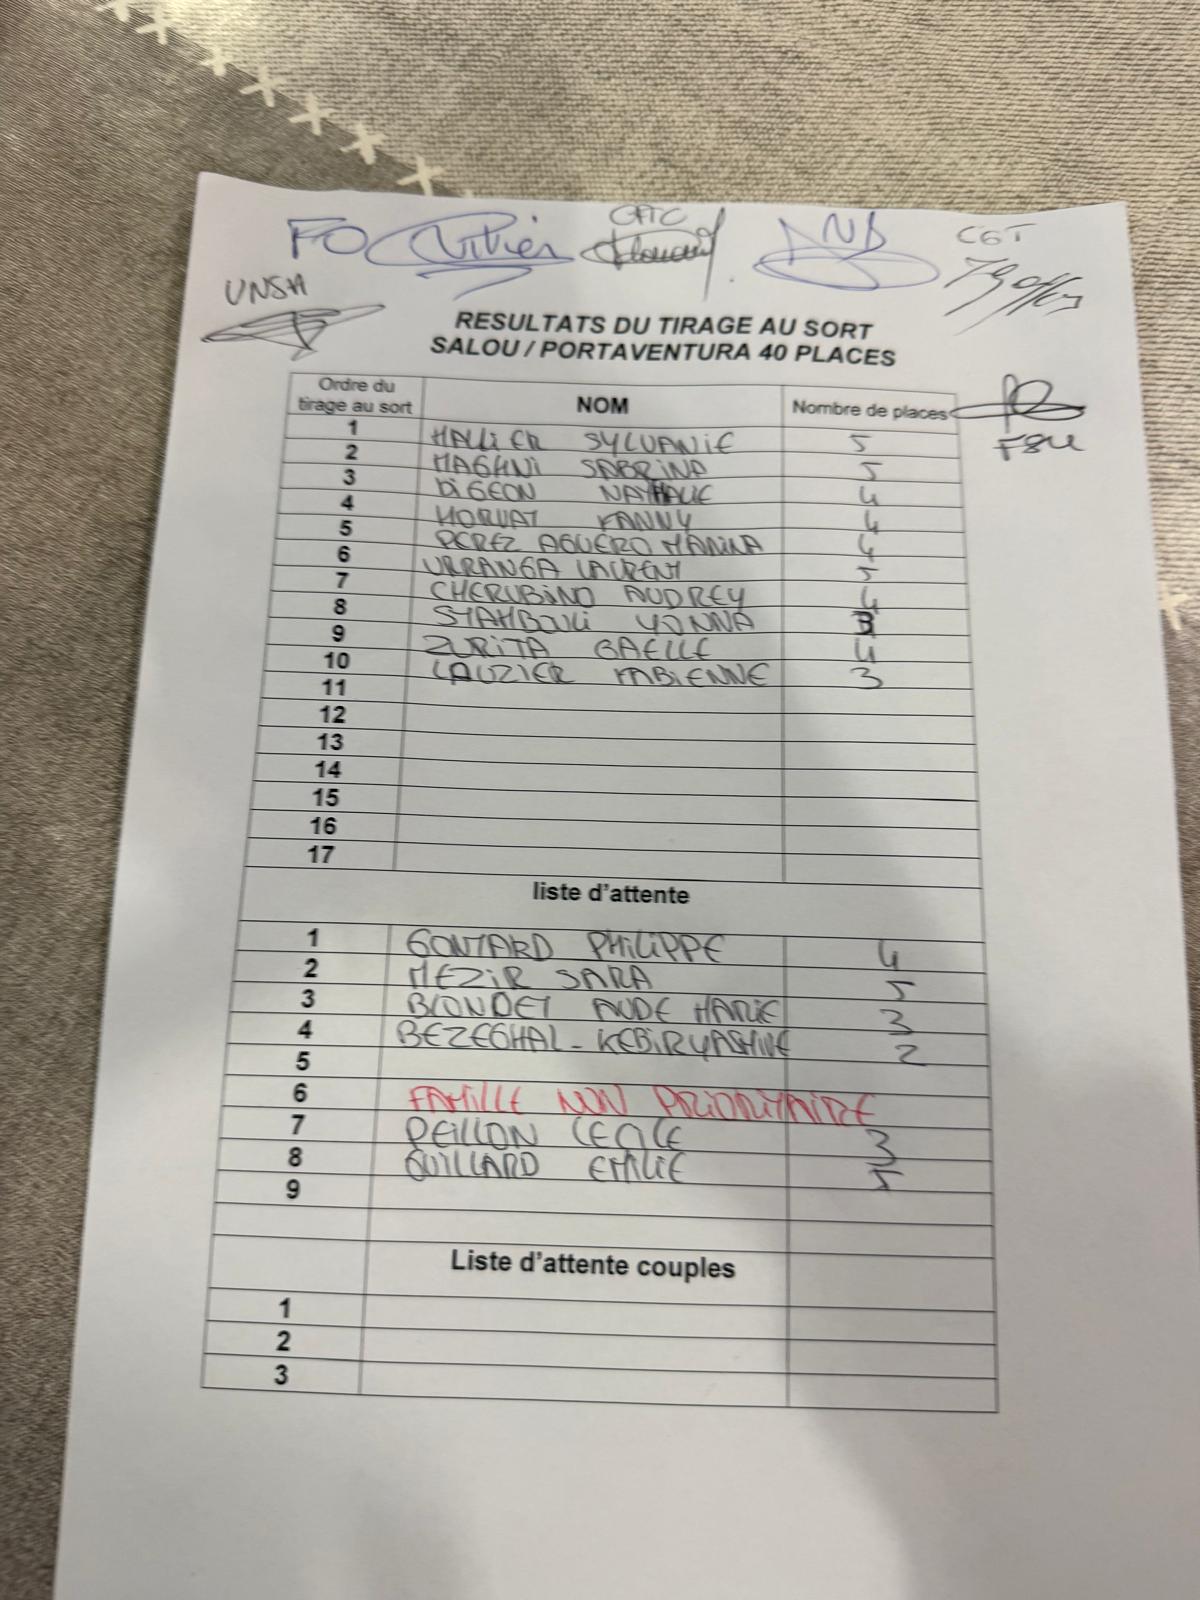 FO CFTC CGT
UNSA
RESULTATS DU TIRAGE AU SORT
SALOU / PORTAVENTURA 40 PLACES
Ordre du tirage au sort NOM Nombre de places
FSU
1 HALLIER SYLVANIE 5
2 MAGHNI SABRINA 5
3 DIGEON NATHALIE 4
4 HORVAT FANNY 4
5 PEREZ AGUERO MARINA 4
6 URRANGA LAURENT 5
7 CHERUBINO AUDREY 4
8 STAMBOULI YONNA 3
9 ZURITA GAELLE 4
10 LAUZIER FABIENNE 3
11
12
13
14
15
16
17
liste d'attente
1 GONTARD PHILIPPE 4
2 MEZIR SARA 5
3 BLONDET AUDE MARIE 3
4 BEZEGHAL - KEBIR 2
5
6 FAMILLE NON PRIORITAIRE
7 PEILLON CECILE 3
8 GUILLARD EMILIE 5
9
Liste d'attente couples
1
2
3